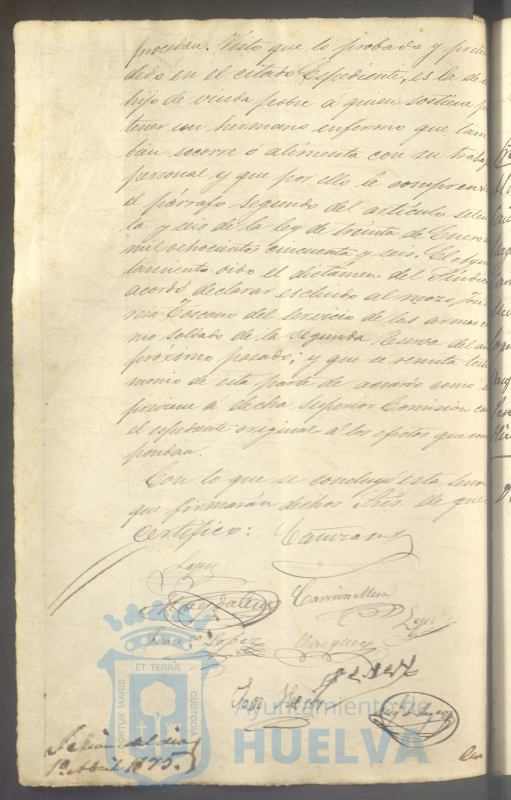 procedan. Visto que lo probado y preten
dido en el citado Espediente, es la de
hijo de viuda pobre á quien sostiene
tener un hermano enfermo que tam
bien socorre o alimenta con su trabajo
personal y que por ello le comprende
el párrafo segundo del artículo seten
ta y seis de la ley de treinta de Enero
mil ochocientos cincuenta y seis. El Ayun
tamiento oido el dictamen del Síndico
acordó declarar escluido al mozo
Toscano del servicio de las armas co
mo soldado de la segunda del año
próximo pasado; y que se remita testi
monio de esta parte de acuerdo como se
previene á dicha Superior Comision con
el espediente original á los efectos que corres
pondan.
Con lo que se concluyó esta sesion
que firmarán dichos Sres. de que
Certifico:
Lopez
Magdalena
Lopez
Lopez
Vazquez
José
ET TERRÆ
PORTUS MARIS
CUSTODIA
Ayuntamiento de
HUELVA
Sesion del dia
1º Abril 1875.